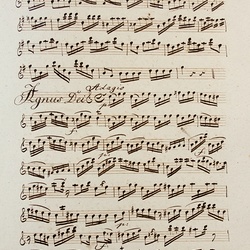 Adagio
Agnus Dei